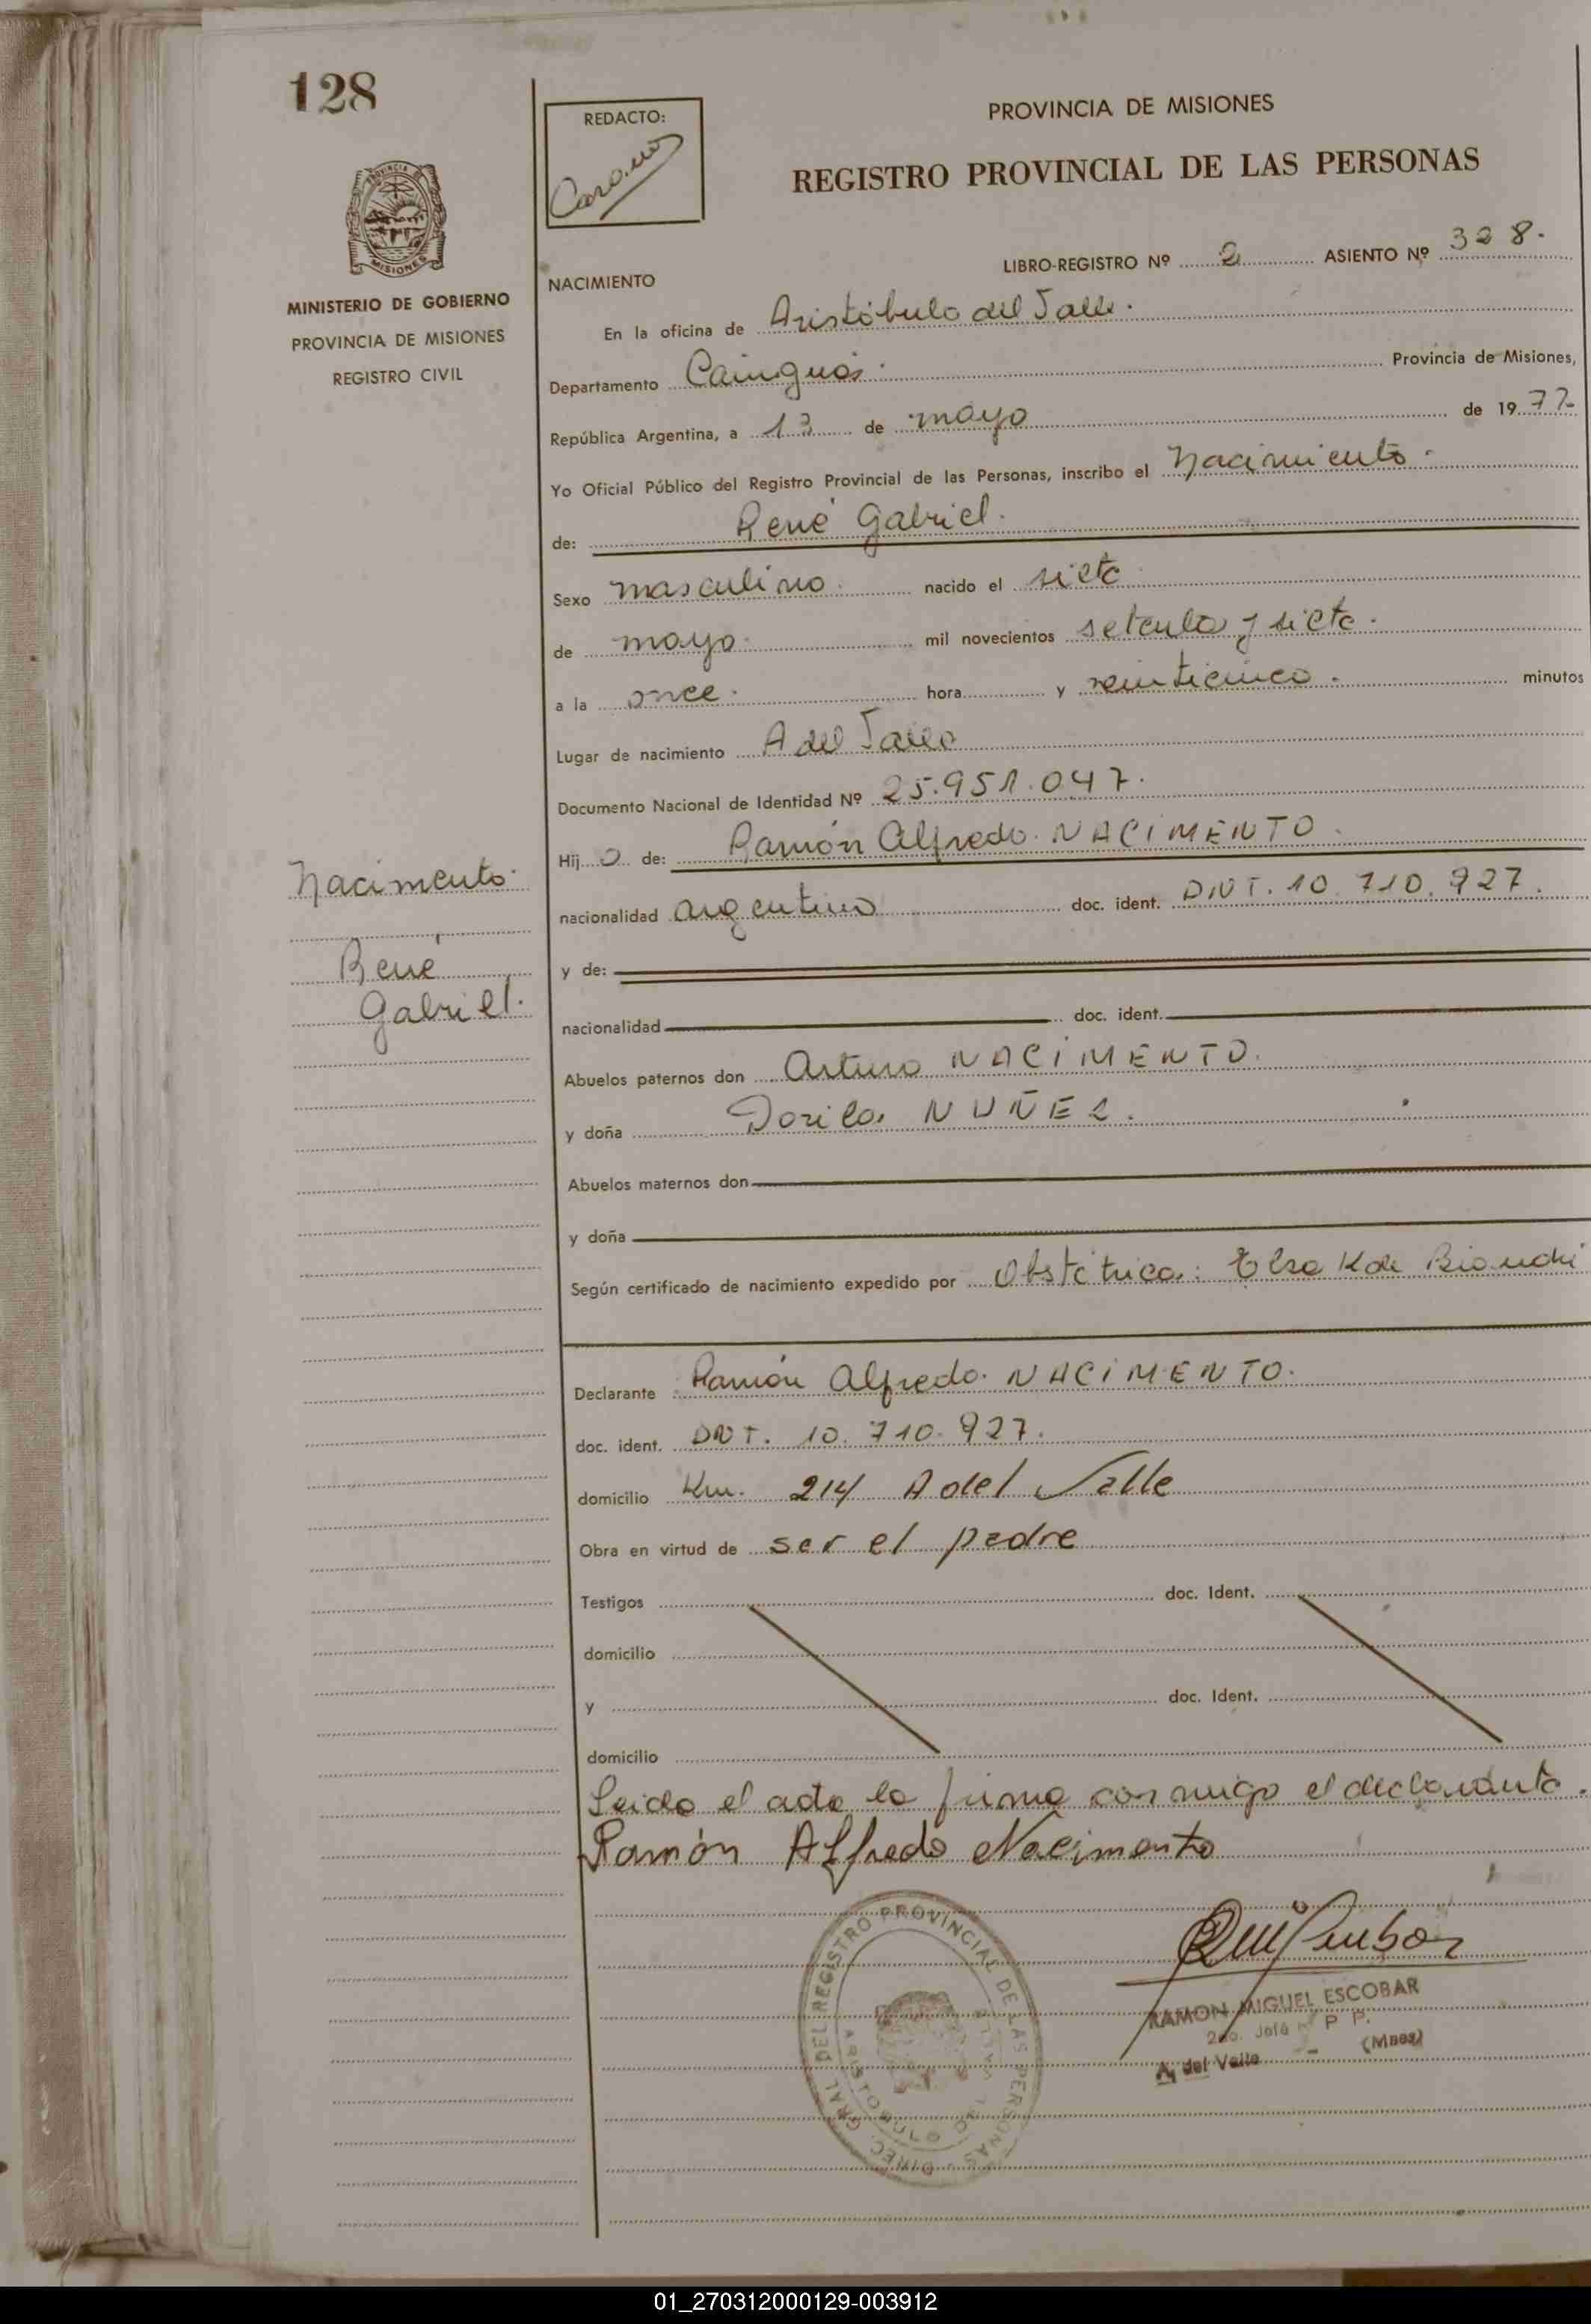 128
REDACTO:
PROVINCIA DE MISIONES
REGISTRO PROVINCIAL DE LAS PERSONAS
PROVINCIA DE
MISIONES
MINISTERIO DE GOBIERNO
PROVINCIA DE MISIONES
REGISTRO CIVIL
LIBRO-REGISTRO Nº 2 ASIENTO Nº 328.
NACIMIENTO
En la oficina de Aristóbulo del Valle.
Departamento Cainguás. Provincia de Misiones,
República Argentina, a 13 de mayo de 1977
Yo Oficial Público del Registro Provincial de las Personas, inscribo el Nacimiento.
de: René Gabriel.
Sexo masculino. nacido el siete
de mayo. mil novecientos setenta y siete.
a la once. hora y veinticinco. minutos
Lugar de nacimiento A del Valle
Documento Nacional de Identidad Nº 25.951.047.
Hijo de: Ramón Alfredo NACIMENTO.
Nacimento.
nacionalidad argentino doc. ident. DNI. 10.710.927.
René
y de:
Gabriel.
nacionalidad doc. ident.
Abuelos paternos don Arturo NACIMENTO.
y doña Dorila NUÑEZ.
Abuelos maternos don
y doña
Según certificado de nacimiento expedido por Obstétrica: Elsa K de Bianchi
Declarante Ramón Alfredo NACIMENTO.
doc. ident. DNI. 10.710.927.
domicilio Km. 214 A del Valle
Obra en virtud de ser el padre
Testigos doc. Ident.
domicilio
y doc. Ident.
domicilio
Leida el acta la firma conmigo el declarante.
Ramón Alfredo Nacimento
DIREC. GRAL DEL REGISTRO PROVINCIAL DE LAS PERSONAS
ARISTOBULO DEL VALLE
RAMON MIGUEL ESCOBAR
2do. Jefe P P.
A. del Valle - (Mnes)
01_270312000129-003912